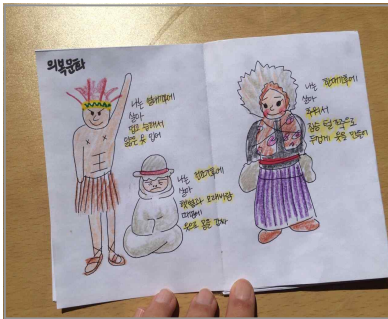 의복문화
나는 열대기후에
살아
덥고 습해서
얇은 옷 입어
나는 건조기후에
살아
햇빛과 모래바람
때문에
옷으로 몸을 감싸
나는 한대기후에
살아
추워서
짐승 털 가죽으로
두껍게 옷을 만들어